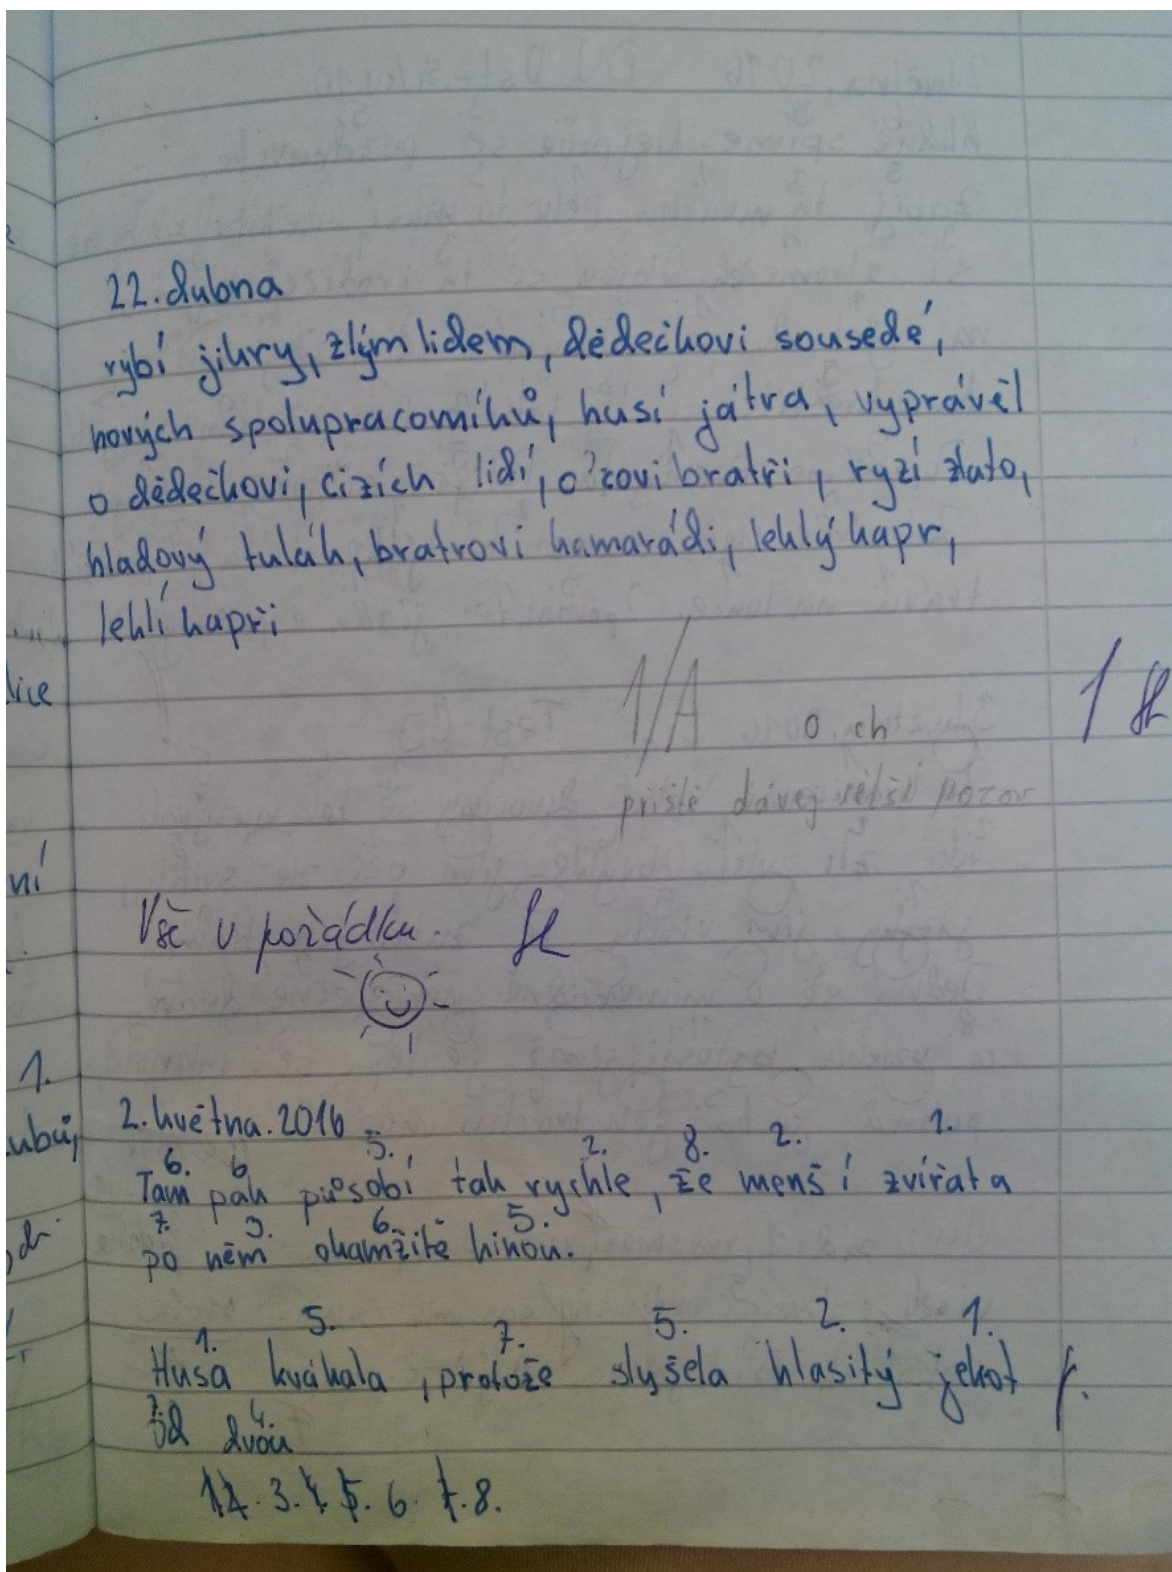 22. dubna
rybí jikry, zlým lidem, dědečkovi sousedé,
nových spolupracovníků, husí játra, vyprávěl
o dědečkovi, cizích lidí, otcovi bratři, ryzí zlato,
hladový tulák, bratrovi kamarádi, lehlý kapr,
lehlí kapři
lice
1/A 0 ch 1
příště dávej větší pozor
ní
Vše v pořádku.
1.
2. května. 2016
ubů,
6. 6 5. 2. 8. 2. 1.
Tam pak působí tak rychle, že menší zvířata
7. 3. 6. 5.
po něm okamžitě hinou.
1. 5. 7. 5. 2. 1.
Husa kvákala, protože slyšela hlasitý jekot
7. 4.
Od dvou
1. 2. 3. 4. 5. 6. 7. 8.